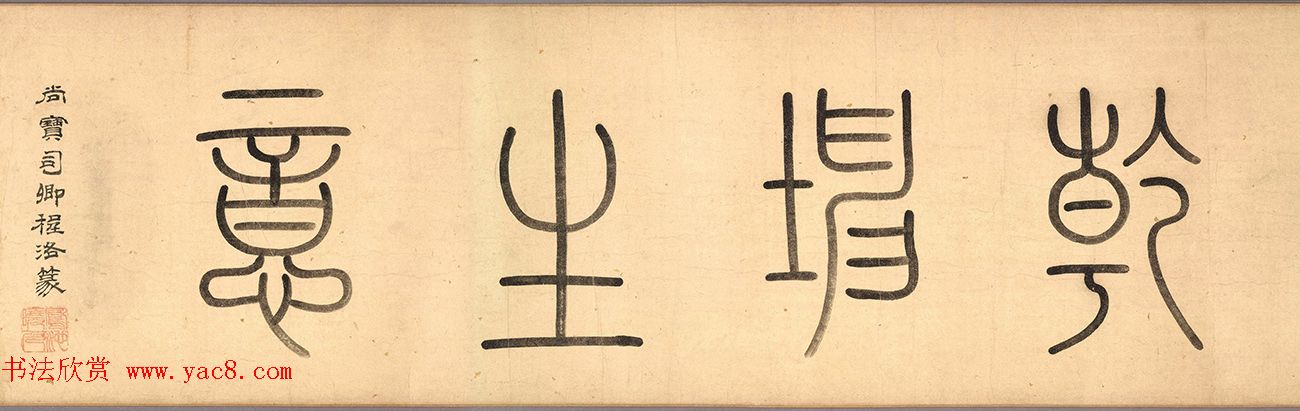 乾坤生意
尚寶司卿程洛篆
书法欣赏 www.yac8.com